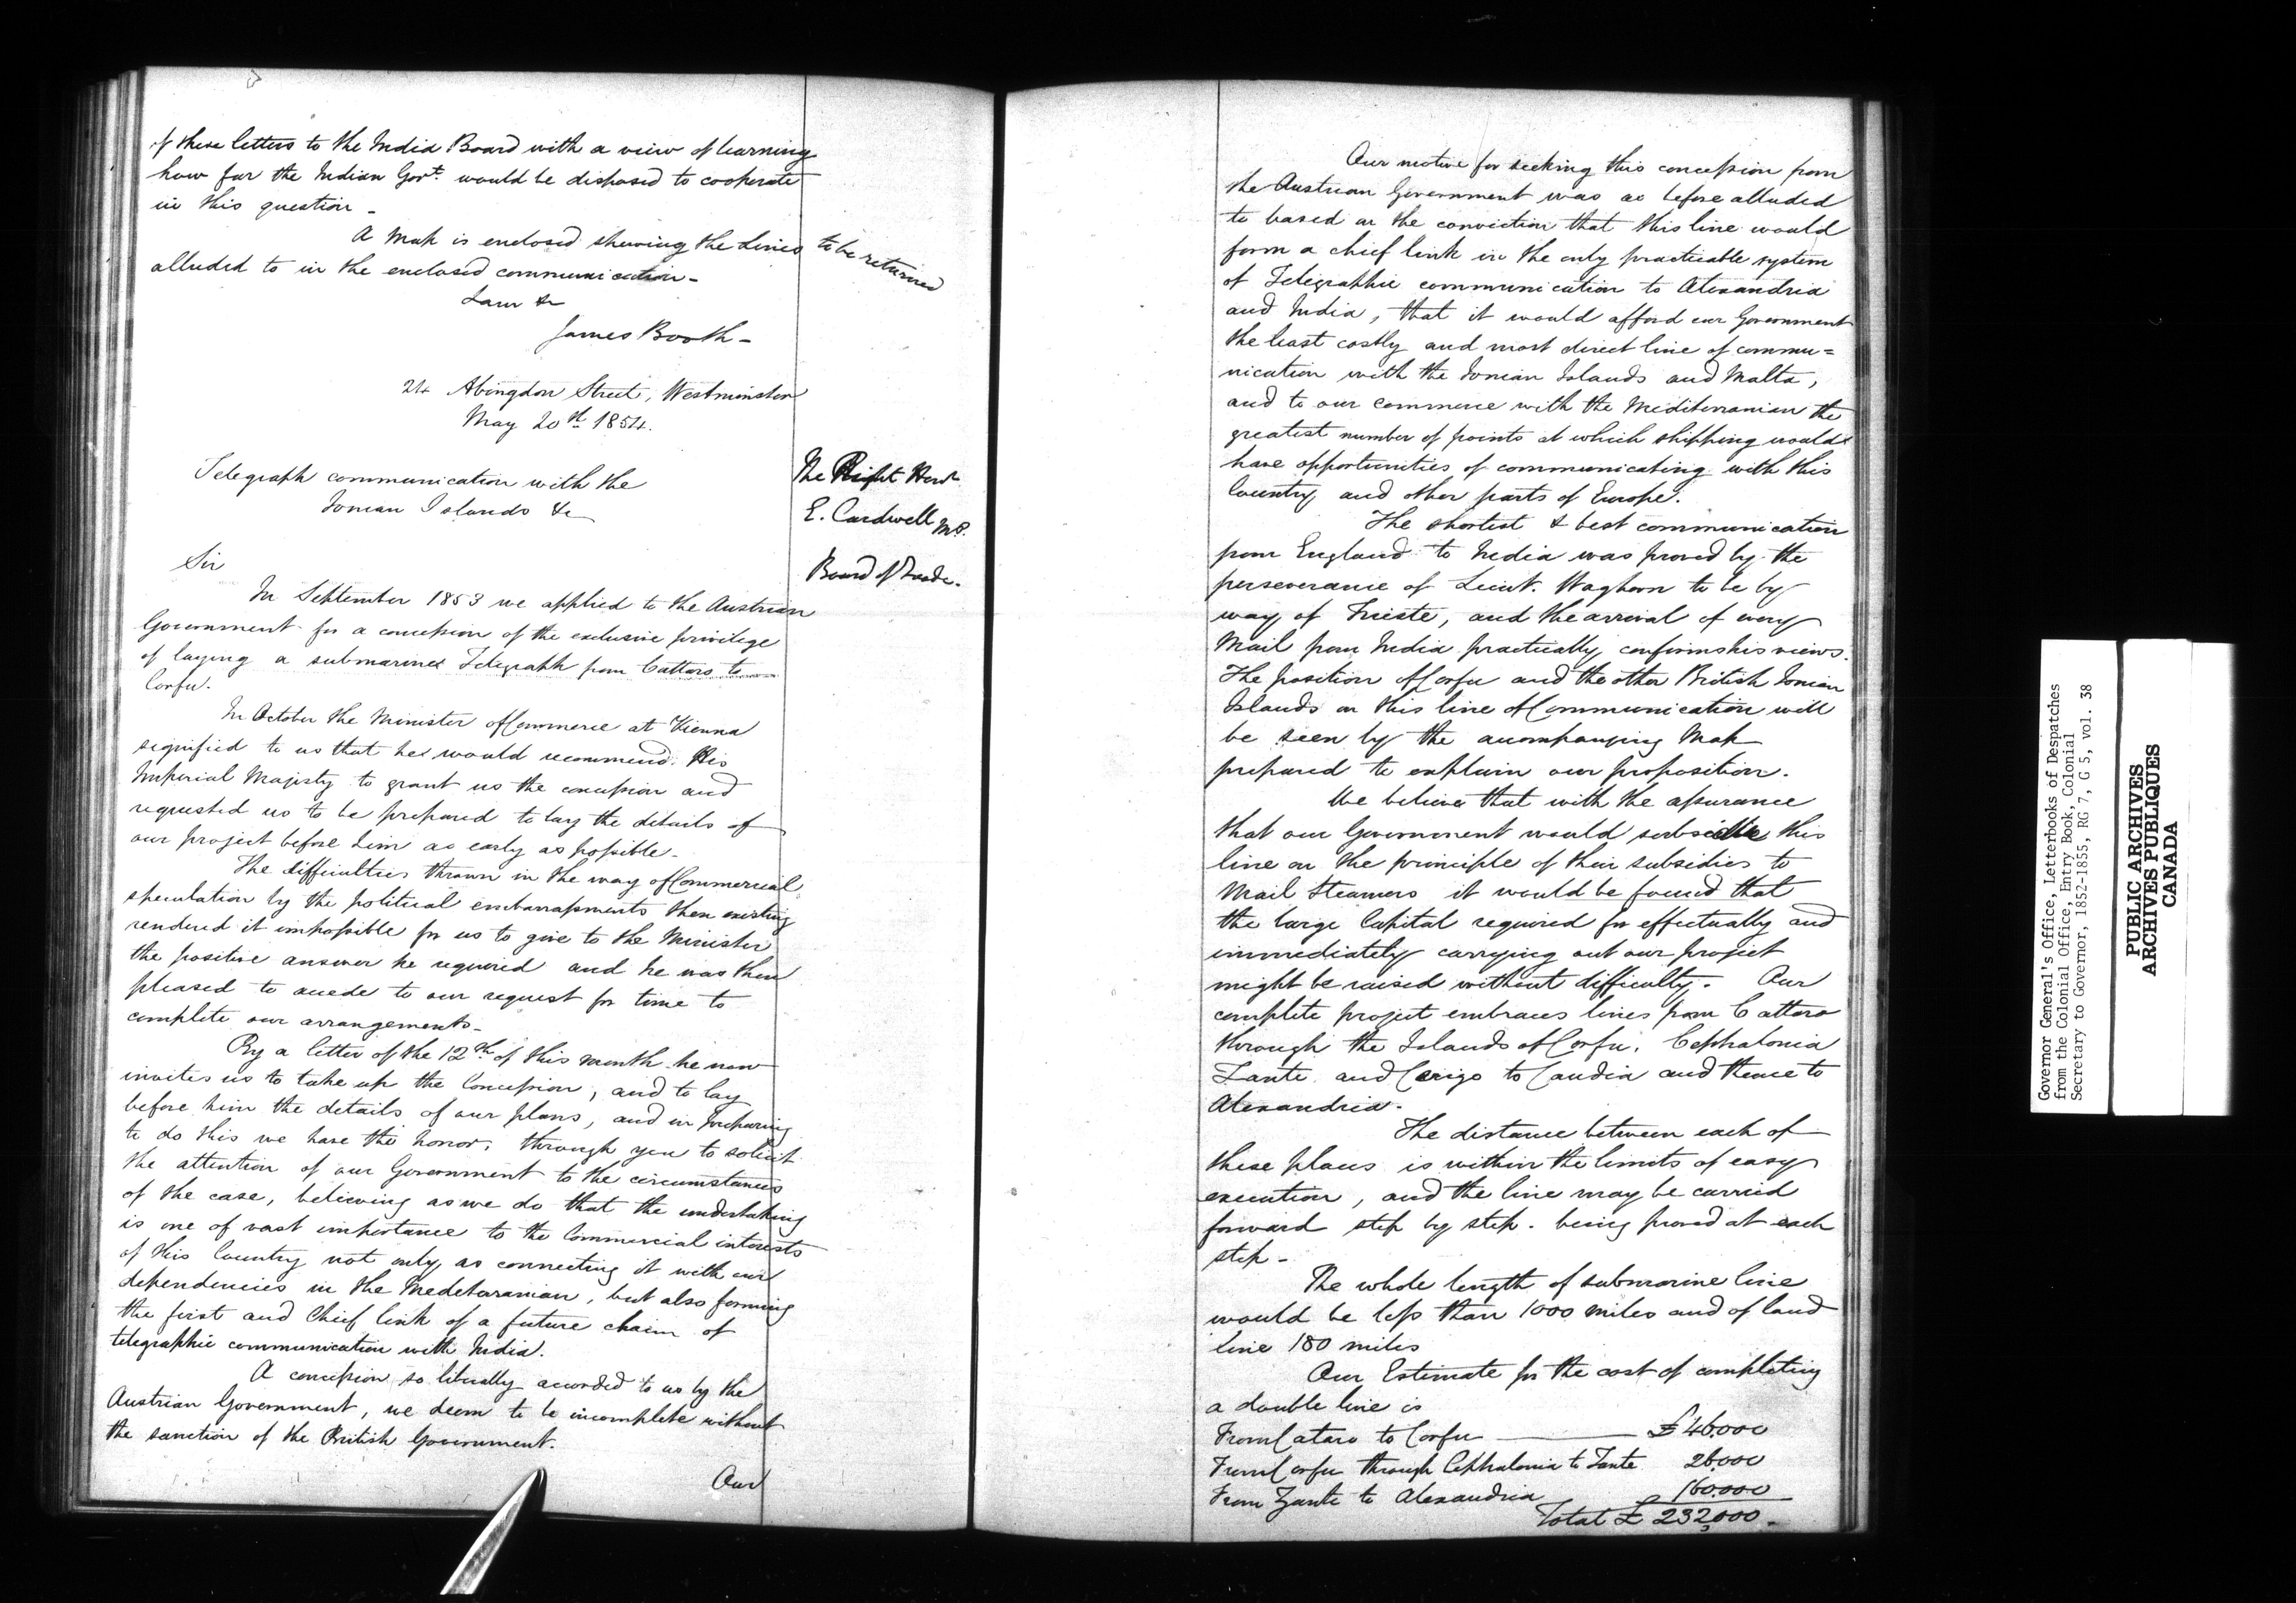 of these letters to the India Board with a view of learning
how far the Indian Govt. would be disposed to cooperate
in this question -
A Map is enclosed shewing the Lines to be returned
alluded to in the enclosed communication -
I am &c
James Booth -
24 Abingdon Street, Westminster
May 20th 1854.
Telegraph communication with the
Ionian Islands &c
The Right Honl
E. Cardwell MP.
Board of Trade.
Sir
In September 1853 we applied to the Austrian
Government for a concession of the exclusive privilege
of laying a submarine Telegraph from Cattaro to
Corfu.
In October the Minister of Commerce at Vienna
signified to us that he would recommend His
Imperial Majesty to grant us the concession and
requested us to be prepared to lay the details of
our project before him as early as possible -
The difficulties thrown in the way of Commercial
speculation by the political embarrassments then existing
rendered it impossible for us to give to the Minister
the positive answer he required and he was then
pleased to accede to our request for time to
complete our arrangements -
By a letter of the 12th of this month he now
invites us to take up the Concession, and to lay
before him the details of our plans, and in preparing
to do this we have the honor, through you to solicit
the attention of our Government to the circumstances
of the case, believing as we do that the undertaking
is one of vast importance to the Commercial interests
of this Country not only as connecting it with our
dependencies in the Medeterranian, but also forming
the first and Chief link of a future chain of
telegraphic communication with India.
A concession so liberally accorded to us by the
Austrian Government, we deem to be incomplete without
the sanction of the British Government.
Our
Our motive for seeking this concession from
the Austrian Government was as before alluded
to based on the conviction that this line would
form a chief link in the only practicable system
of Telegraphic communication to Alexandria
and India, that it would afford our Government
the least costly and most direct line of commu=
nication with the Ionian Islands and Malta,
and to our commerce with the Mediterranian the
greatest number of points at which shipping would
have opportunities of communicating with this
Country and other parts of Europe.
The shortest & best communication
from England to India was proved by the
perseverance of Lieut. Waghorn to be by
way of Trieste, and the arrival of every
Mail from India practically confirms his views.
The position of Corfu and the other British Ionian
Islands on this line of Communication will
be seen by the accompanying Map
prepared to explain our proposition.
We believe that with the assurance
that our Government would subsidize this
line on the principle of their subsidies to
Mail Steamers it would be found that
the large Capital required for effectually and
immediately carrying out our project
might be raised without difficulty. Our
complete project embraces lines from Cattaro
through the Islands of Corfu, Cephalonia
Zante and Cerigo to Candia and thence to
Alexandria.
The distance between each of
these places is within the limits of easy
execution, and the line may be carried
forward step by step. being proved at each
step -
The whole length of submarine line
would be less than 1000 miles and of land
line 180 miles
Our Estimate for the cost of completing
a double line is
From Cataro to Corfu £46.000
From Corfu through Cephalonia to Zante 26.000
From Zante to Alexandria 160.000
Total £ 232,000 -
Governor General's Office, Letterbooks of Despatches
from the Colonial Office, Entry Book, Colonial
Secretary to Governor, 1852-1855, RG 7, G 5, vol. 38
PUBLIC ARCHIVES
ARCHIVES PUBLIQUES
CANADA